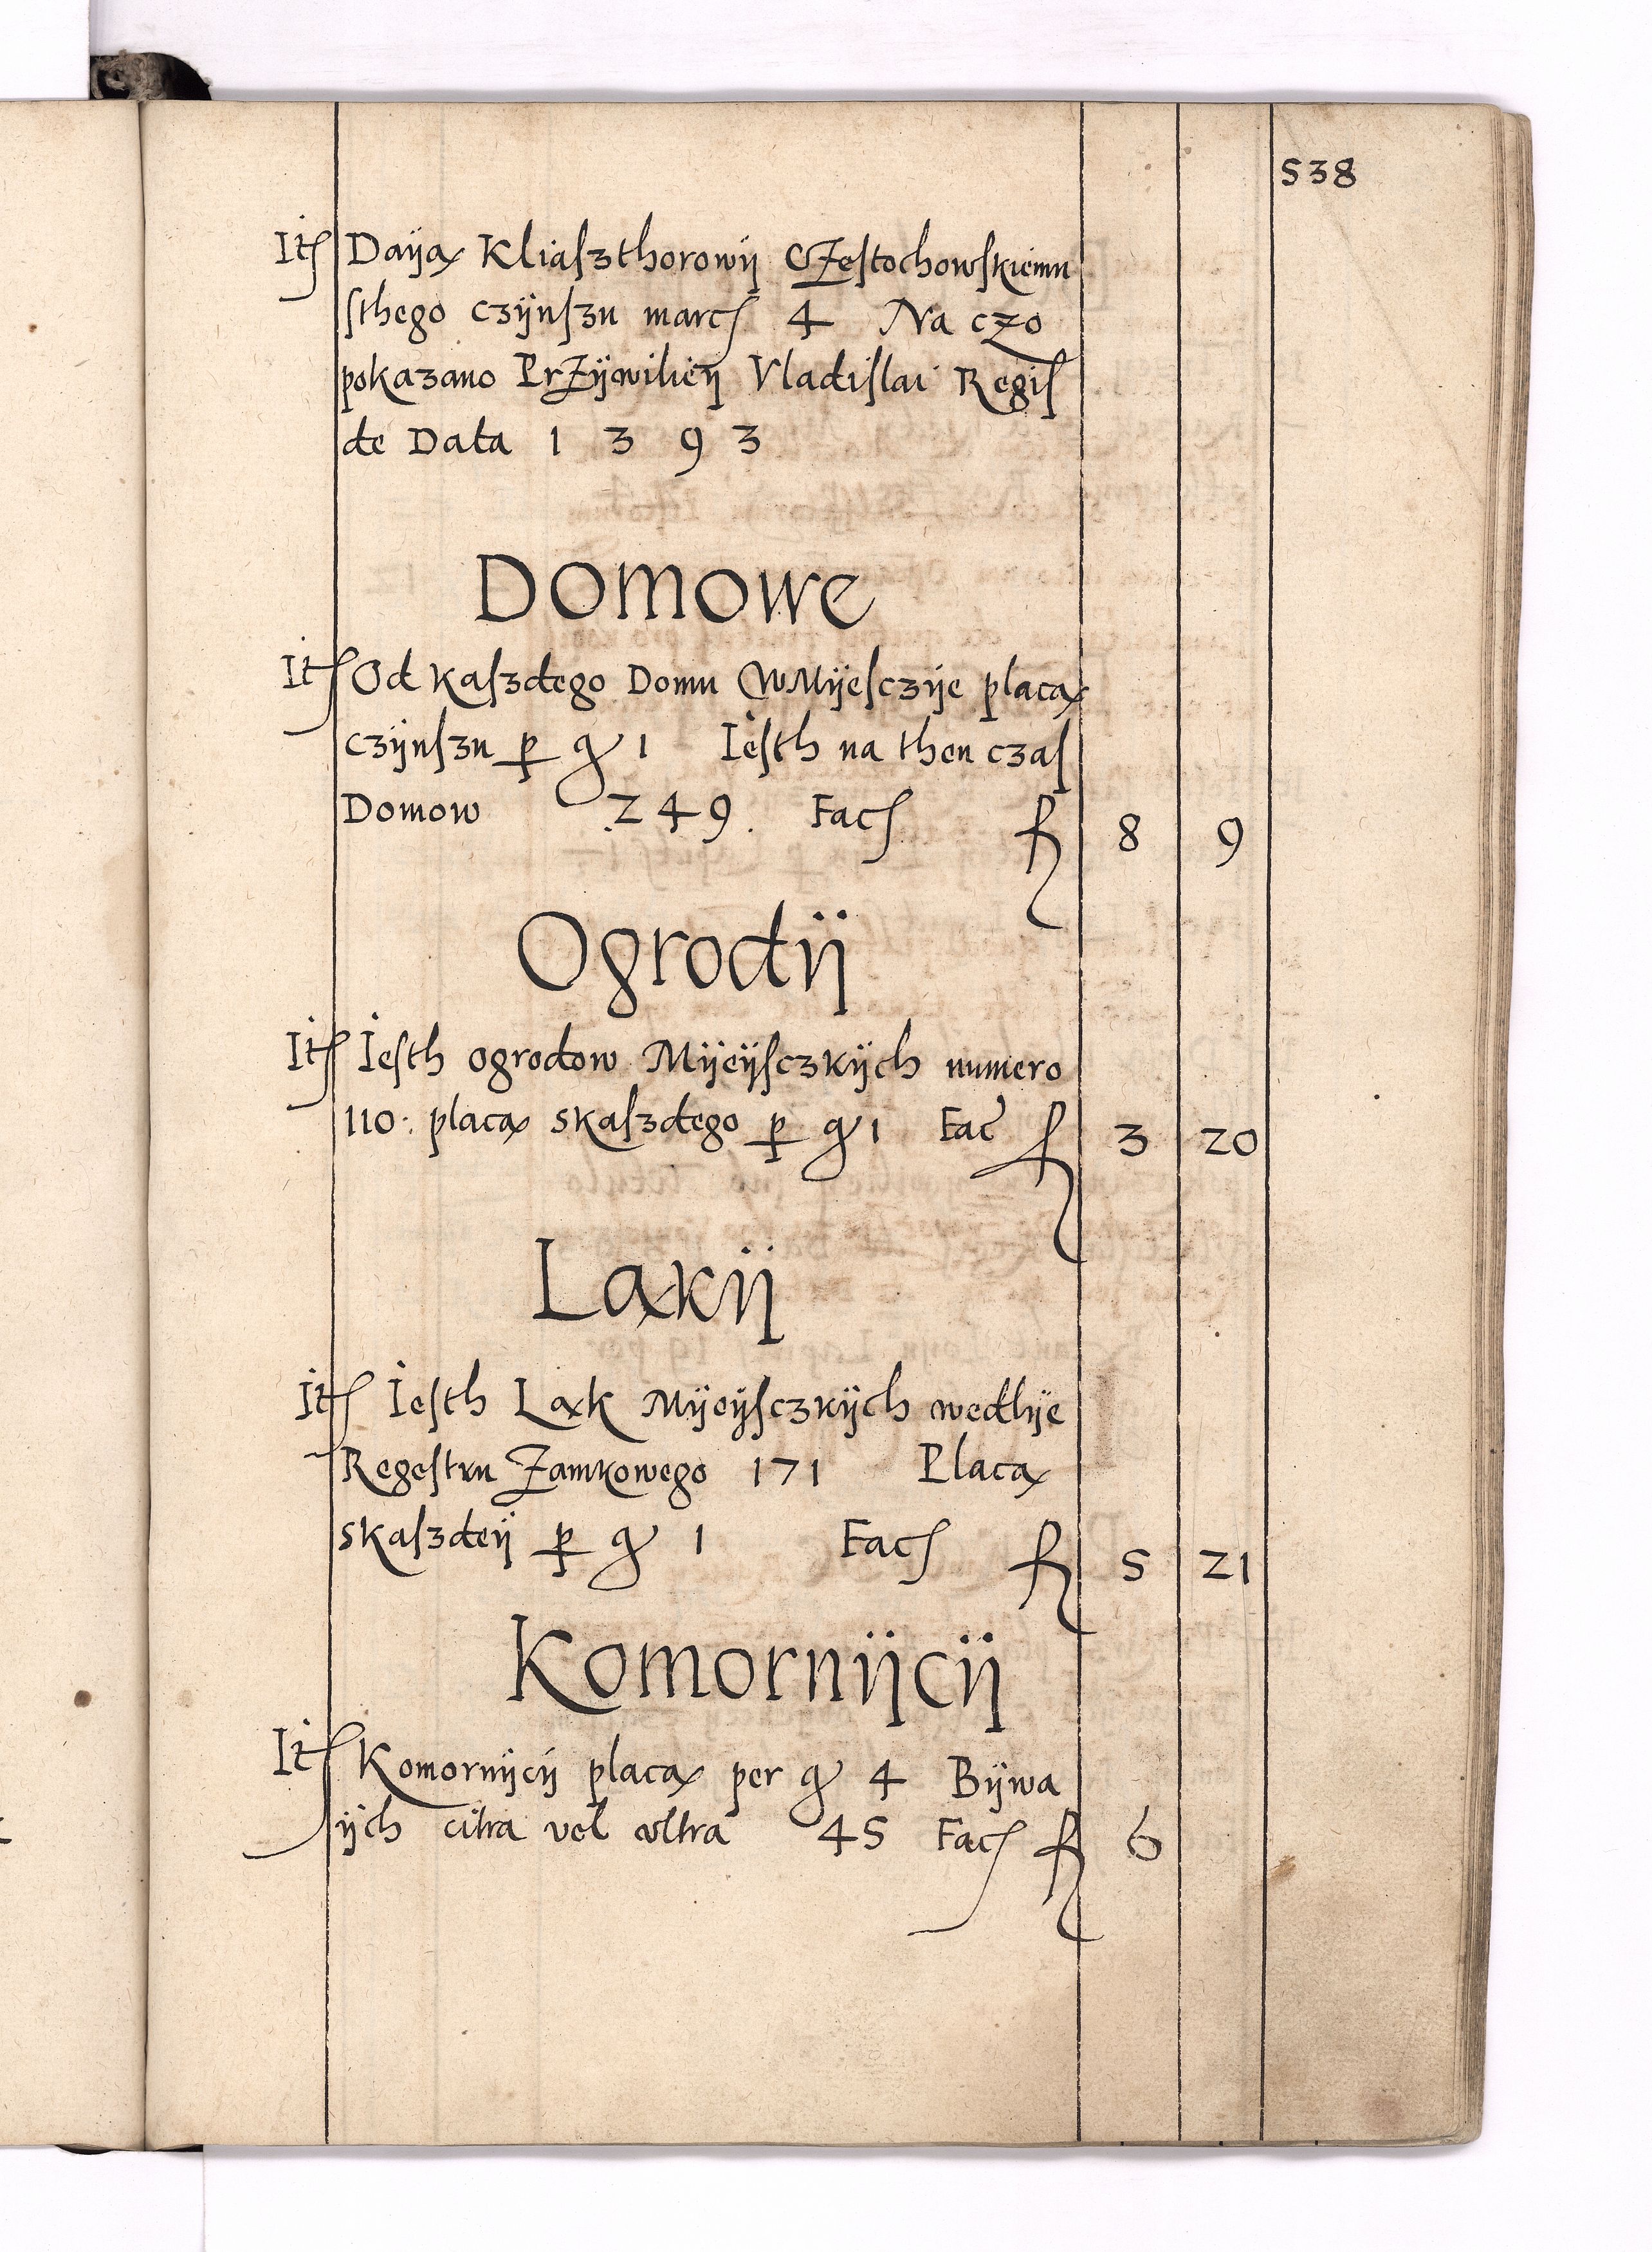 538
Itſ Daÿą Kliaſzthorowÿ CZeſtochowſkiemu
ſthego czÿnſzu marcſ 4 Na czo
pokazano PrZÿwileÿ Vladiſlai Regiſ
de Data 1 3 9 3
Domowe
Itſ Od kaſzdego Domu WMÿeſczÿe placą
czÿnſzu p gr 1 Ieſth na then czaſ
Domow .249. Facſ fl 8 9
Ogrodÿ
Itſ Ieſth ogrodow Mÿeÿſczkÿch numero
110. placą skaſzdego p gr 1 Fac fl 3 20
Ląkÿ
Itſ Ieſth Ląk Mÿeÿſczkÿch wedlÿe
Regeſtru Zamkowego 171 Placą
skaſzdeÿ p gr 1 Facſ fl 5 21
Komornÿcÿ
Itſ Komornÿcÿ placą per gr 4 Bÿwa
ÿch citra vel vltra 45 Facſ fl 6